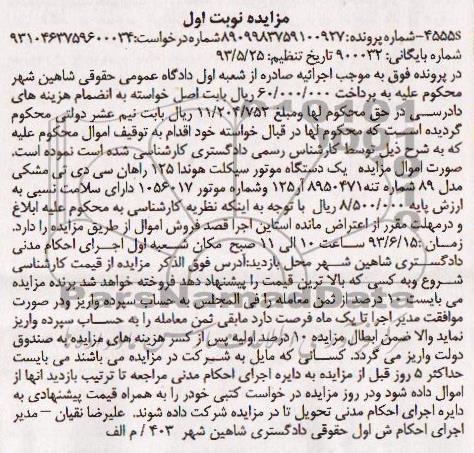 مزایده نوبت اول
۴۵۵۵S-شماره پرونده:۸۹۰۹۹۸۳۷۵۹۱۰۰۹۲۷شماره درخواست:۹۳۱۰۴۶۳۷۵۹۶۰۰۰۳۴
شماره بایگانی: ۹۰۰۰۳۲ تاریخ تنظیم: ۹۳/۵/۲۵
در پرونده فوق به موجب اجرائیه صادره از شعبه اول دادگاه عمومی حقوقی شاهین شهر
محکوم علیه به پرداخت ۶۰/۰۰۰/۰۰۰ ریال بابت اصل خواسته به انضمام هزینه های
دادرسی در حق محکوم لها ومبلغ ۱۱/۲۰۴/۷۵۲ ریال بابت نیم عشر دولتی محکوم
گردیده است که محکوم لها در قبال خواسته خود اقدام به توقیف اموال محکوم علیه
که به شرح ذیل توسط کارشناس رسمی دادگستری کارشناسی شده است نموده است.
صورت اموال مزایده یک دستگاه موتور سیکلت هوندا ۱۲۵ راهان سی دی تی مشکی
مدل ۸۹ شماره تنه ۸۹۵۰۴۷۱ آر۱۲۵ وشماره موتور ۱۰۵۶۰۱۷ دارای سلامت نسبی به
ارزش پایه ۸/۵۰۰/۰۰۰ ریال با توجه به اینکه نظریه کارشناسی به محکوم علیه ابلاغ
و درمهلت مقرر از اعتراض مانده است این اجرا قصد فروش اموال از طریق مزایده را دارد.
زمان :۹۳/۶/۱۵ ساعت ۱۰ الی ۱۱ صبح مکان شعبه اول اجرای احکام مدنی
دادگستری شاهین شهر محل بازدید:آدرس فوق الذکر مزایده از قیمت کارشناسی
شروع وبه کسی که بالا ترین قیمت را پیشنهاد دهد فروخته خواهد شد.برنده مزایده
می بایست ۱۰ درصد از ثمن معامله را فی المجلس به حساب سپرده واریز ودر صورت
موافقت مدیر اجرا تا یک ماه فرصت دارد مابقی ثمن معامله را به حساب سپرده واریز
نماید والا ضمن ابطال مزایده ۱۰درصد اولیه پس از کسر هزینه های مزایده به صندوق
دولت واریز می گردد. کسانی که مایل به شرکت در مزایده می باشند می بایست
حداکثر ۵ روز قبل از مزایده به دایره اجرای احکام مدنی مراجعه تا ترتیب بازدید انها از
اموال داده شود ودر روز مزایده در خواست کتبی خودر را به همراه قیمت پیشنهادی به
دایره اجرای احکام مدنی تحویل تا در مزایده شرکت داده شوند. علیرضا نقیان –مدیر
اجرای احکام ش اول حقوقی دادگستری شاهین شهر ۴۰۳ / م الف